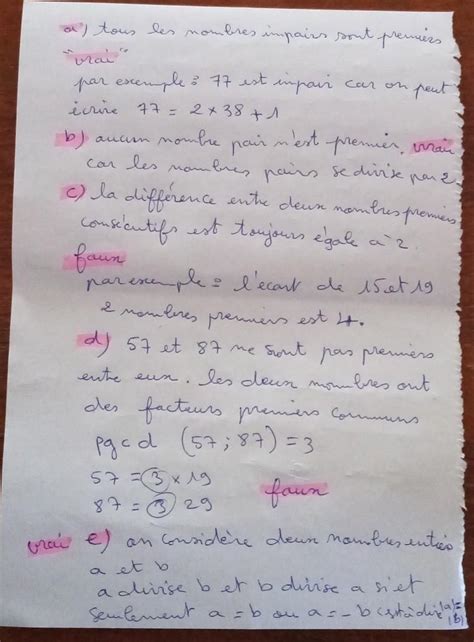 a) tous les nombres impairs sont premiers
"vrai"
par exemple : 77 est impair car on peut
écrire 77 = 2 x 38 + 1
b) aucun nombre pair n'est premier, vrai
car les nombres pairs se divise par 2
c) la différence entre deux nombres premiers
consécutifs est toujours égale à 2.
faux
par exemple : l'écart de 15 et 19
2 nombres premiers est 4.
d) 57 et 87 ne sont pas premiers
entre eux. les deux nombres ont
des facteurs premiers communs
pgcd (57 ; 87) = 3
57 = 3 x 19
87 = 3 29 faux
vrai e) on considère deux nombres entiers
a et b
a divise b et b divise a si et
seulement a = b ou a = - b c'est à dire |a| =
|b|